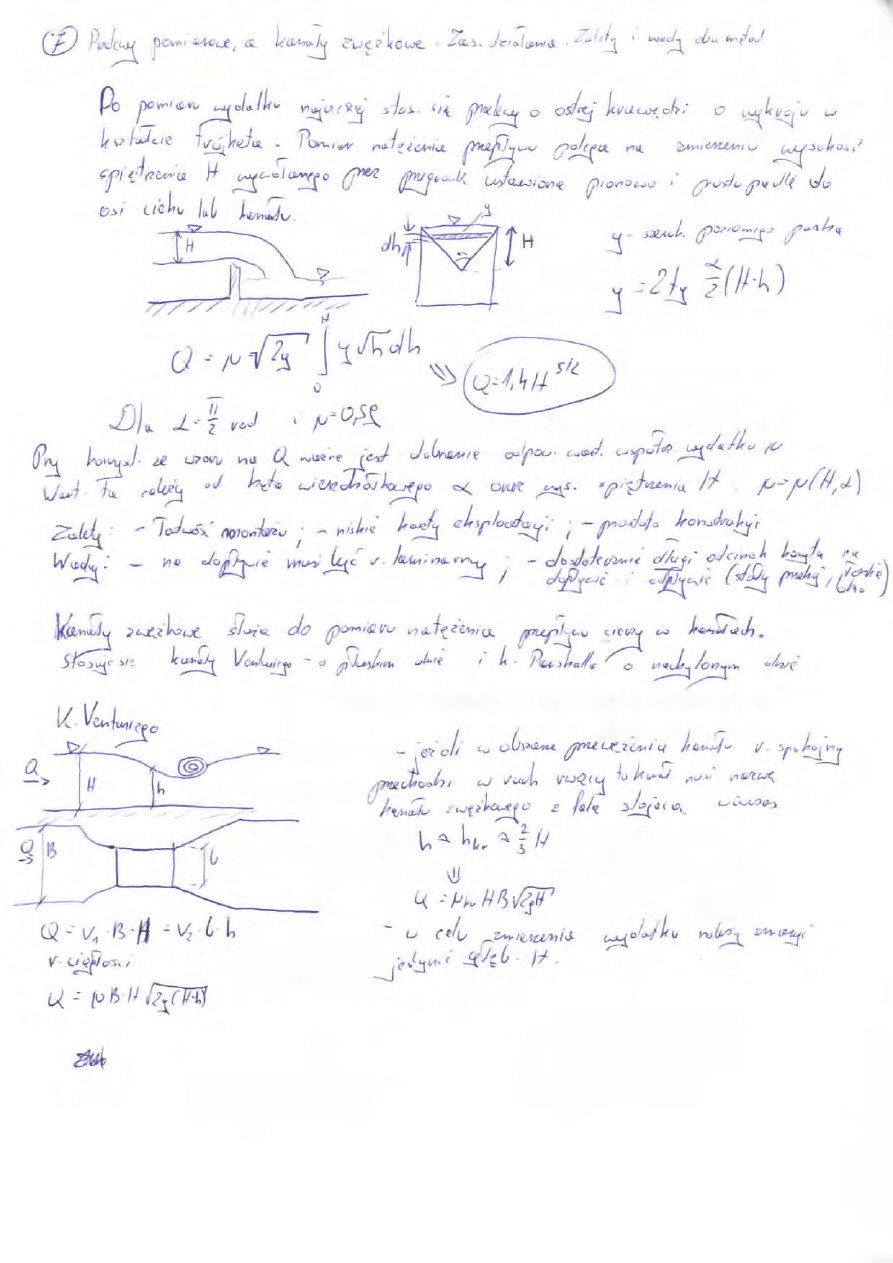 7 Przelewy pomiarowe, a kanały zwężkowe. Zas. działania. Zalety i wady obu metod
Do pomiaru wydatku najczęściej stos. się przelewy o ostrej krawędzi o wykroju w
kształcie trójkąta. Pomiar natężenia przepływu polega na zmierzeniu wysokości
spiętrzenia H wywołanego przez przegrodę ustawioną pionowo i prostopadle do
osi cieku lub kanału.
H
dh
y
H
y - szerok. poziomego paska
y = 2tg α/2 (H-h)
Q = μ √2g ∫₀ᴴ y√h dh ⇒ Q=1,4H^5/2
Dla α = π/2 rad i μ=0,59
Przy korzyst. ze wzoru na Q ważne jest dobranie odpow. wart. współcz. wydatku μ
Wart. ta zależy od kąta wierzchołkowego α oraz wys. spiętrzenia H. μ=μ(H,α)
Zalety: - łatwość montażu; - niskie koszty eksploatacji; - prostota konstrukcji
Wady: - na dopływie musi być r. laminarny; - dostatecznie długi odcinek koryta na
dopływie i odpływie (stały przekrój, płaskie dno)
Kanały zwężkowe służą do pomiaru natężenia przepływu cieczy w kanałach.
Stosuje się kanały Venturiego - o płaskim dnie i k. Parshalla o nachylonym dnie
K. Venturiego
Q
H
h
Q
B
b
Q = V₁ · B · H = V₂ · b · h
r. ciągłości
Q = μ B·H √2g(H-h)
- jeżeli w obszarze przewężenia kanału r. spokojny
przechodzi w ruch rwący to kanał nosi nazwę
kanału zwężkowego z falą stojącą, wówczas
h ≈ hkr ≈ 2/3 H
⇓
Q = μkr HB√2gH
- w celu zmierzenia wydatku należy zmierzyć
jedynie głęb. H.